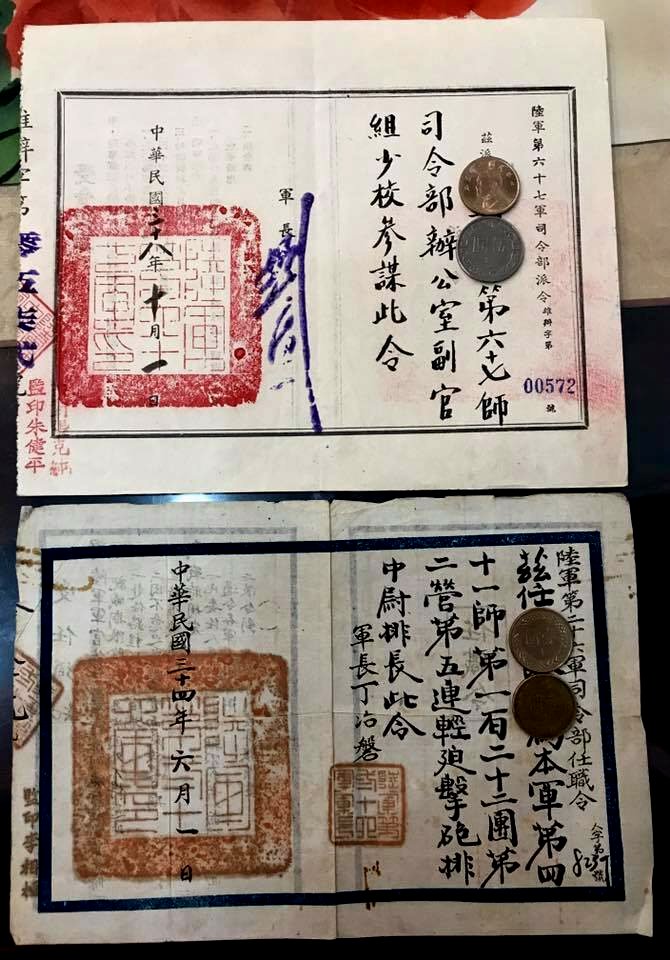 陸軍第六十七軍司令部派令雄辦字第
00572
號
茲派
第六十七師
司令部辦公室副官
組少校參謀此令
軍長
中華民國三十八年十月一日
雄辦字第
零伍柒貳
號
監印朱健平
陸軍第二十六軍司令部任職令
茲任
為本軍第四
十一師第一百二十二團第
二營第五連輕迫擊砲排
中尉排長此令
軍長丁治磐
中華民國三十四年六月一日